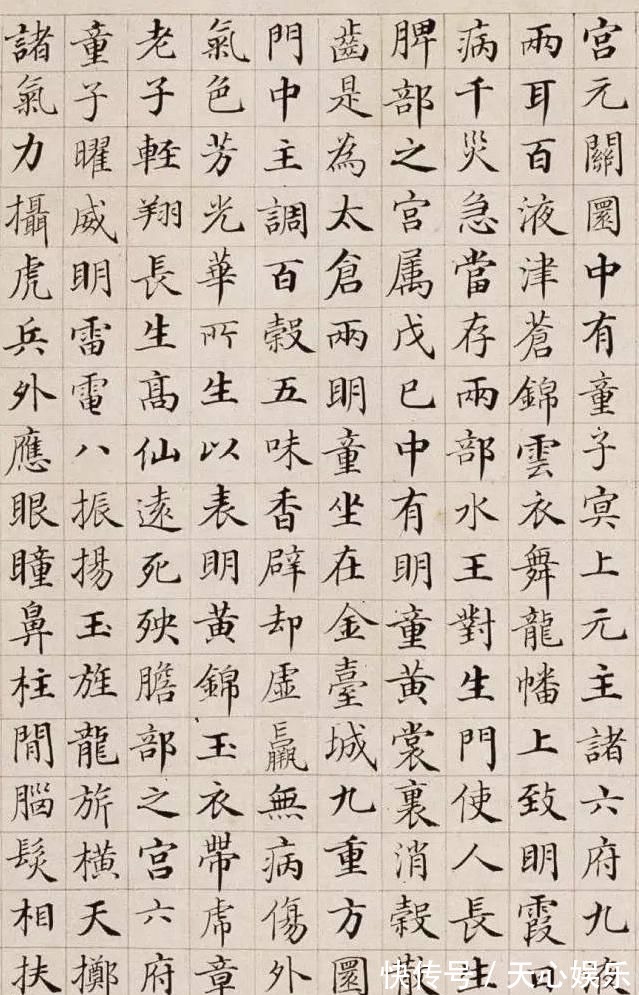 宮元關圓中有童子冥上元主諸六府九液
兩耳百液津蒼錦雲衣舞龍幡上致明霞日
病千災急當存兩部水王對生門使人長生
脾部之宮属戊巳中有明童黃裳裏消穀散
齒是為太倉兩明童坐在金臺城九重方圓
門中主調百穀五味香辟却虛羸無病傷外
氣色芳光華所生以表明黃錦玉衣帶虎章
老子輕翔長生高仙遠死殃膽部之宮六府
童子曜威明雷電八振揚玉旌龍旂橫天擲
諸氣力攝虎兵外應眼瞳鼻柱間腦髮相扶
快传号/天心娱乐